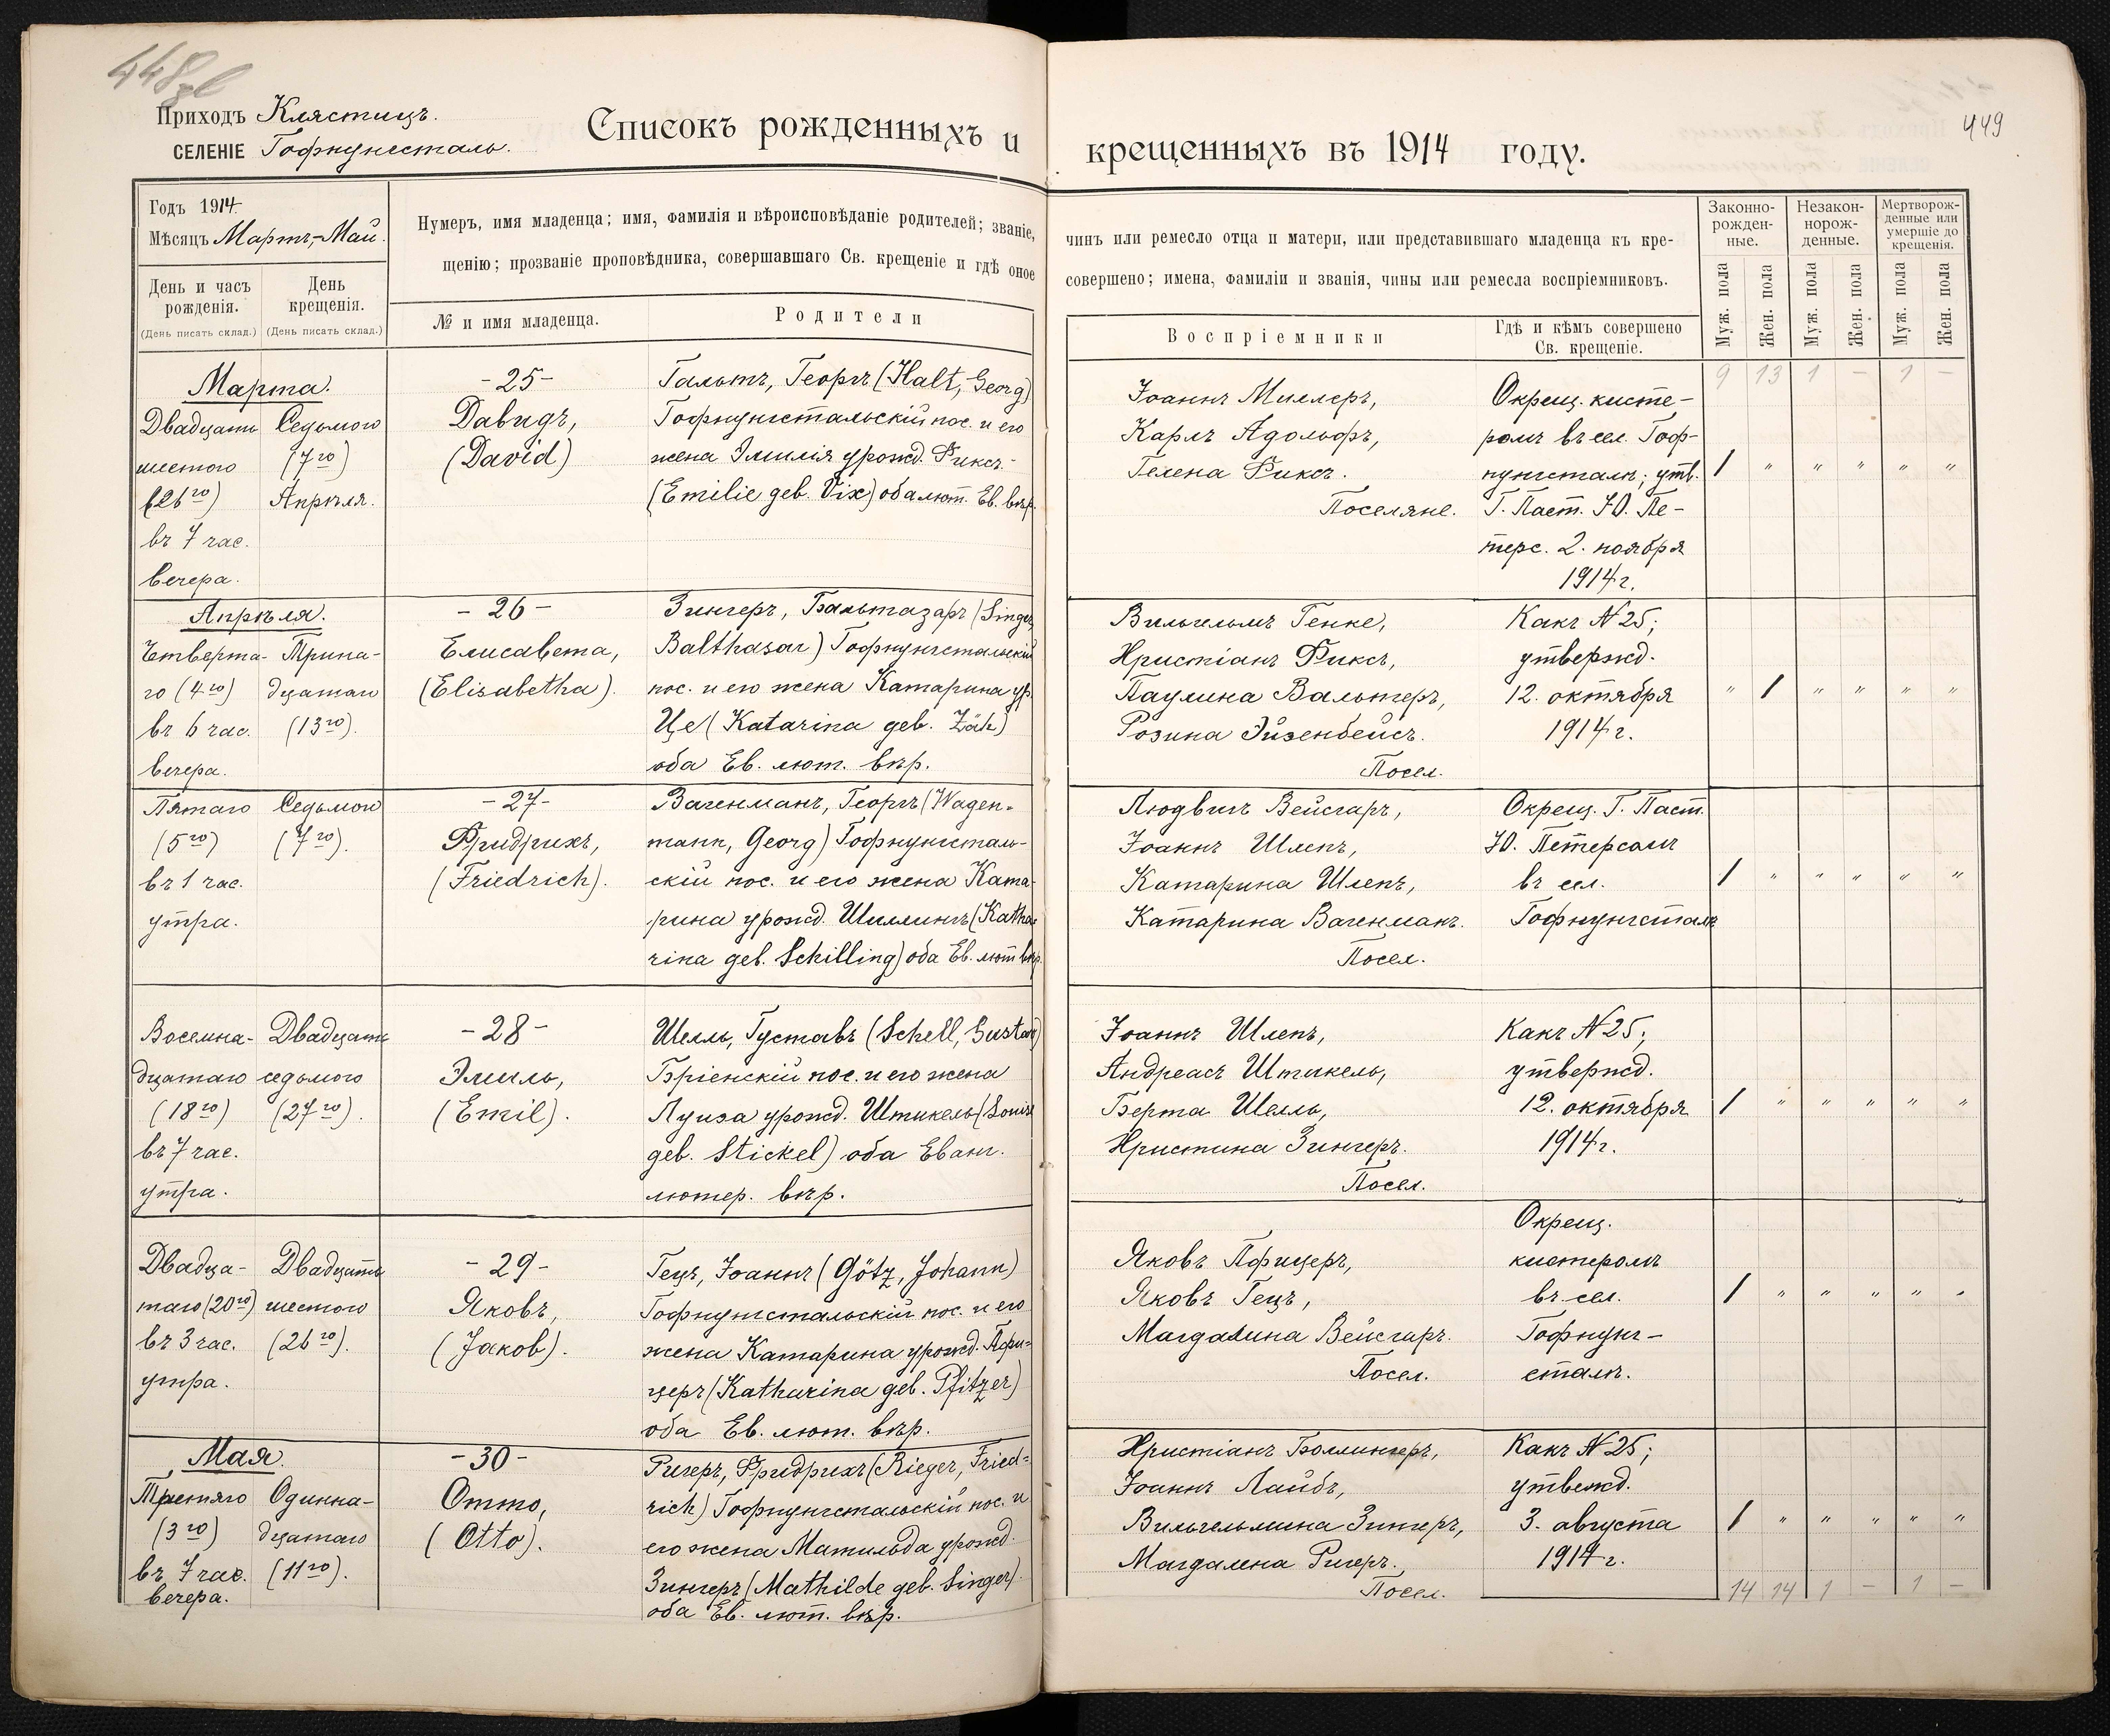 448
449
Приходъ Клястицъ.
СЕЛЕНІЕ Гофнунгсталь.
Списокъ рожденныхъ и крещенныхъ въ 1914 году.
Годъ 1914
Мѣсяцъ Мартъ-Май.
День и часъ рожденія.
(День писать склад.)
День крещенія.
(День писать склад.)
Нумеръ, имя младенца; имя, фамилія и вѣроисповѣданіе родителей; званіе, чинъ или ремесло отца и матери, или представившаго младенца къ кре-
щенію; прозваніе проповѣдника, совершавшаго Св. крещеніе и гдѣ оное совершено; имена, фамиліи и званія, чины или ремесла воспріемниковъ.
№ и имя младенца.
Родители
Воспріемники
Гдѣ и кѣмъ совершено Св. крещеніе.
Законно-рожден-ные.
Незакон-норож-денные.
Мертворож-денные или умершіе до крещенія.
Муж. пола
Жен. пола
Муж. пола
Жен. пола
Муж. пола
Жен. пола
9 13 1 – 1 –
Марта.
Двадцать
шестого
(26го)
въ 7 час.
вечера.
Седьмого
(7го)
Апрѣля.
-25-
Давидъ,
(David)
Гальтъ, Георгъ (Halt, Georg)
Гофнунгстальскій пос. и его
жена Эмилія урожд. Фиксъ.
(Emilie geb. Vix) оба лют. Ев. вѣр.
Іоаннъ Миллеръ,
Карлъ Адольфъ,
Гелена Фиксъ.
Поселяне.
Окрещ. кисте-
ромъ въ сел. Гоф-
нунгсталь; утв.
Г. Паст. Ю. Пе-
терс. 2. ноября
1914 г.
1 " " " " "
Апрѣля.
Четверта-
го (4го)
въ 6 час.
вечера.
Трина-
дцатаго
(13го).
-26-
Елисавета,
(Elisabetha).
Зингеръ, Бальтазаръ (Singer,
Balthasar) Гофнунгстальскій
пос. и его жена Катарина ур.
Це (Katarina geb. Zäh)
оба Ев. лют. вѣр.
Вильгельмъ Генке,
Христіанъ Фиксъ,
Паулина Вальтеръ,
Розина Эйзенбейсъ.
Посел.
Какъ N 25;
утвержд.
12. октября
1914 г.
" 1 " " " "
Пятаго
(5го)
въ 1 час.
утра.
Седьмого
(7го).
-27-
Фридрихъ,
(Friedrich).
Вагенманъ, Георгъ (Wagen-
mann, Georg) Гофнунгсталь-
скій пос. и его жена Ката-
рина урожд. Шиллингъ (Katha-
rina geb. Schilling) оба Ев. лют. вѣр.
Людвигъ Вейсгаръ,
Іоаннъ Шлепъ,
Катарина Шлепъ,
Катарина Вагенманъ.
Посел.
Окрещ. Г. Паст.
Ю. Петерсомъ
въ сел.
Гофнунгсталь
1 " " " " "
Восемна-
дцатаго
(18го)
въ 7 час.
утра.
Двадцать
седьмого
(27го).
-28-
Эмиль,
(Emil).
Шелль, Густавъ (Schell, Gustav)
Бріенскій пос. и его жена
Луиза урожд. Штикель (Louise
geb. Stickel) оба Еванг.
лютер. вѣр.
Іоаннъ Шлепъ,
Андреасъ Штикель,
Берта Шелль,
Христина Зингеръ.
Посел.
Какъ N 25;
утвержд.
12. октября
1914 г.
1 " " " " "
Двадца-
таго (20го)
въ 3 час.
утра.
Двадцать
шестого
(26го).
-29-
Яковъ,
(Jakob).
Гецъ, Іоаннъ (Götz, Johann)
Гофнунгстальскій пос. и его
жена Катарина урожд. Пфи-
церъ (Katharina geb. Pfitzer)
оба Ев. лют. вѣр.
Яковъ Пфицеръ,
Яковъ Гецъ,
Магдалина Вейсгаръ.
Посел.
Окрещ.
кистеромъ
въ сел.
Гофнунг-
сталь.
1 " " " " "
Мая.
Третяго
(3го)
въ 7 час.
вечера.
Одинна-
дцатаго
(11го).
-30-
Отто,
(Otto).
Ригеръ, Фридрихъ (Rieger, Fried-
rich) Гофнунгстальскій пос. и
его жена Матильда урожд.
Зингеръ (Mathilde geb. Singer)
оба Ев. лют. вѣр.
Христіанъ Боллингеръ,
Іоаннъ Лайбъ,
Вильгельмина Зингеръ,
Магдалена Ригеръ.
Посел.
Какъ N 25;
утвежд.
3. августа
1914 г.
1 " " " " "
14 14 1 – 1 –